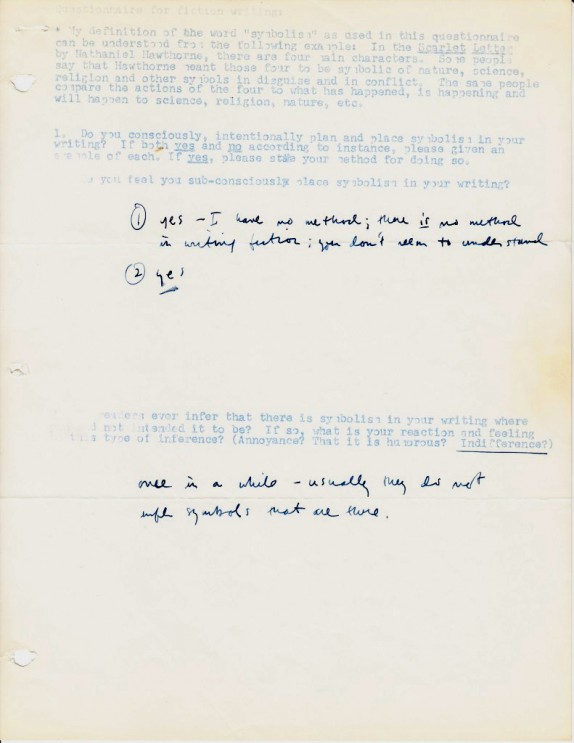 Questionnaire for fiction writing:
My definition of the word "symbolism" as used in this questionnaire
can be understood from the following example: In the Scarlet Letter
by Nathaniel Hawthorne, there are four main characters. Some people
say that Hawthorne meant those four to be symbolic of nature, science,
religion and other symbols in disguise and in conflict. The same people
compare the actions of the four to what has happened, is happening and
will happen to science, religion, nature, etc.
1. Do you consciously, intentionally plan and place symbolism in your
writing? If both yes and no according to instance, please given an
example of each. If yes, please state your method for doing so.
o you feel you sub-consciously place symbolism in your writing?
① yes – I have no method; there is no method
in writing fiction; you don't seem to understand
② yes
readers ever infer that there is symbolism in your writing where
not intended it to be? If so, what is your reaction and feeling
this type of inference? (Annoyance? That it is humorous? Indifference?)
once in a while – usually they do not
infer symbols that are there.